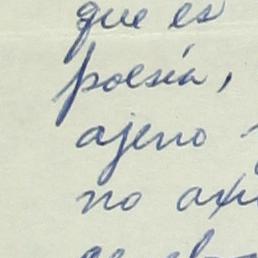 que es
poesía,
ajeno
no